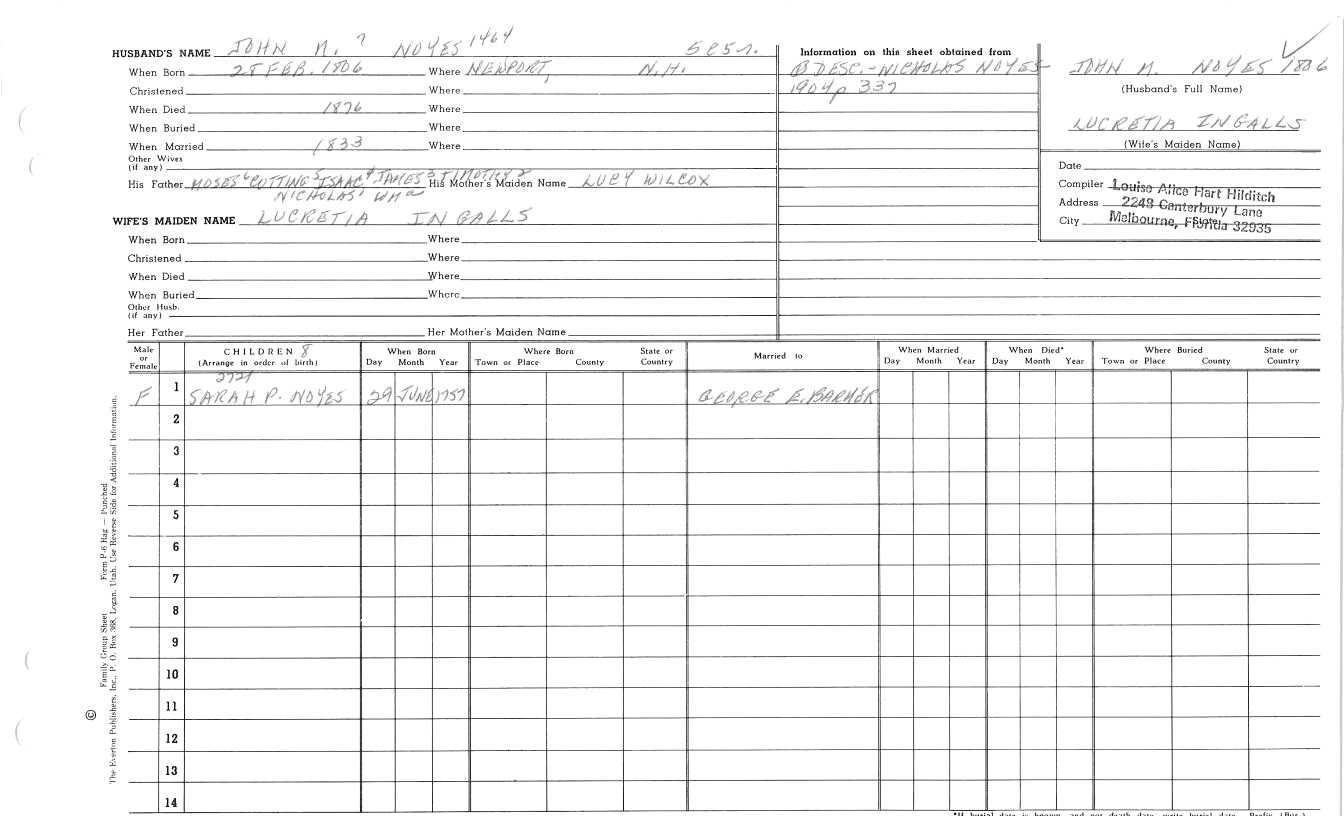 HUSBAND'S NAME JOHN M. 7 NOYES 1464
Information on this sheet obtained from
When Born 28 FEB. 1806 Where NEWPORT, N.H.
DESC.-NICHOLAS NOYES
1904 p 337
JOHN M. NOYES 1806
(Husband's Full Name)
LUCRETIA INGALLS
(Wife's Maiden Name)
Christened Where
When Died 1876 Where
When Buried Where
When Married 1833 Where
Other Wives
(if any)
His Father MOSES 6 CUTTING 5 ISAAC 4 JAMES 3 TIMOTHY 2 His Mother's Maiden Name LUCY WILCOX
NICHOLAS 1 WM
Date
Compiler Louise Alice Hart Hilditch
Address 2243 Canterbury Lane
City Melbourne, Florida 32935
State
WIFE'S MAIDEN NAME LUCRETIA INGALLS
When Born Where
Christened Where
When Died Where
When Buried Where
Other Husb.
(if any)
Her Father Her Mother's Maiden Name
Male or Female
CHILDREN 8
(Arrange in order of birth)
When Born
Day Month Year
Where Born
Town or Place County State or Country
Married to
When Married
Day Month Year
When Died*
Day Month Year
Where Buried
Town or Place County State or Country
2727
F 1 SARAH P. NOYES 29 JUNE 1757 GEORGE E. BARKER
2
3
4
5
6
7
8
9
10
11
12
13
14
© Family Group Sheet Form P-6 Hag — Punched
The Everton Publishers, Inc., P. O. Box 368, Logan, Utah. Use Reverse Side for Additional Information.
*If burial date is known, and not death date, write burial date